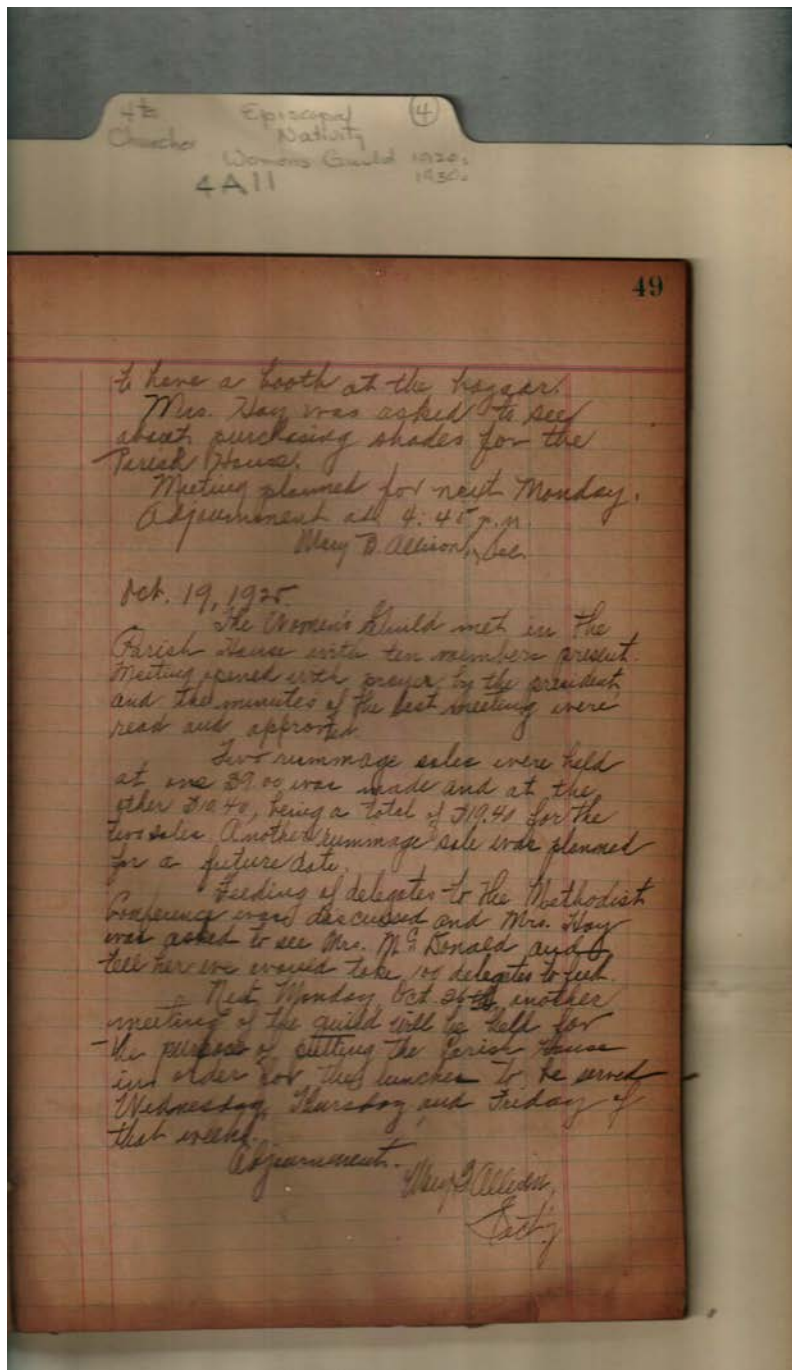 4ts Episcopal 4
Churches Nativity
Womens Guild 1920s
4A11 1930s
49
to have a booth at the bazaar.
Mrs. Hay was asked to see
about purchasing shades for the
Parish House.
Meeting planned for next Monday.
Adjournment at 4:45 p.m.
Mary B. Allison, Sec.
Oct. 19, 1925.
The Women's Guild met in the
Parish House with ten members present.
Meeting opened with prayer by the president
and the minutes of the last meeting were
read and approved.
Two rummage sales were held
at one $9.00 was made and at the
other $10.40, being a total of $19.40 for the
two sales. Another rummage sale was planned
for a future date.
Feeding of delegates to the Methodist
Conference was discussed and Mrs. Hay
was asked to see Mrs. McDonald and
tell her we would take delegates to feed.
Next Monday, Oct. 26th, another
meeting of the guild will be held for
the purpose of putting the Parish House
in order for the lunches to be served
Wednesday, Thursday and Friday of
that week.
Adjournment.
Mary B Allison,
Sect'y